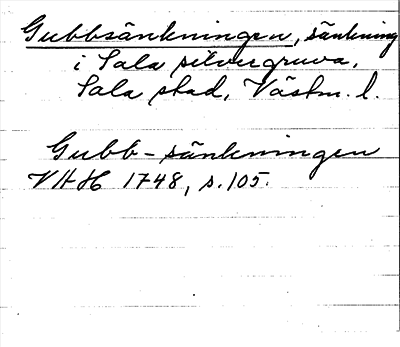 Gubbsänkningen, sänkning
i Sala silvergruva,
Sala stad, Västm. l.
Gubb-sänkningen
VAH 1748, s. 105.